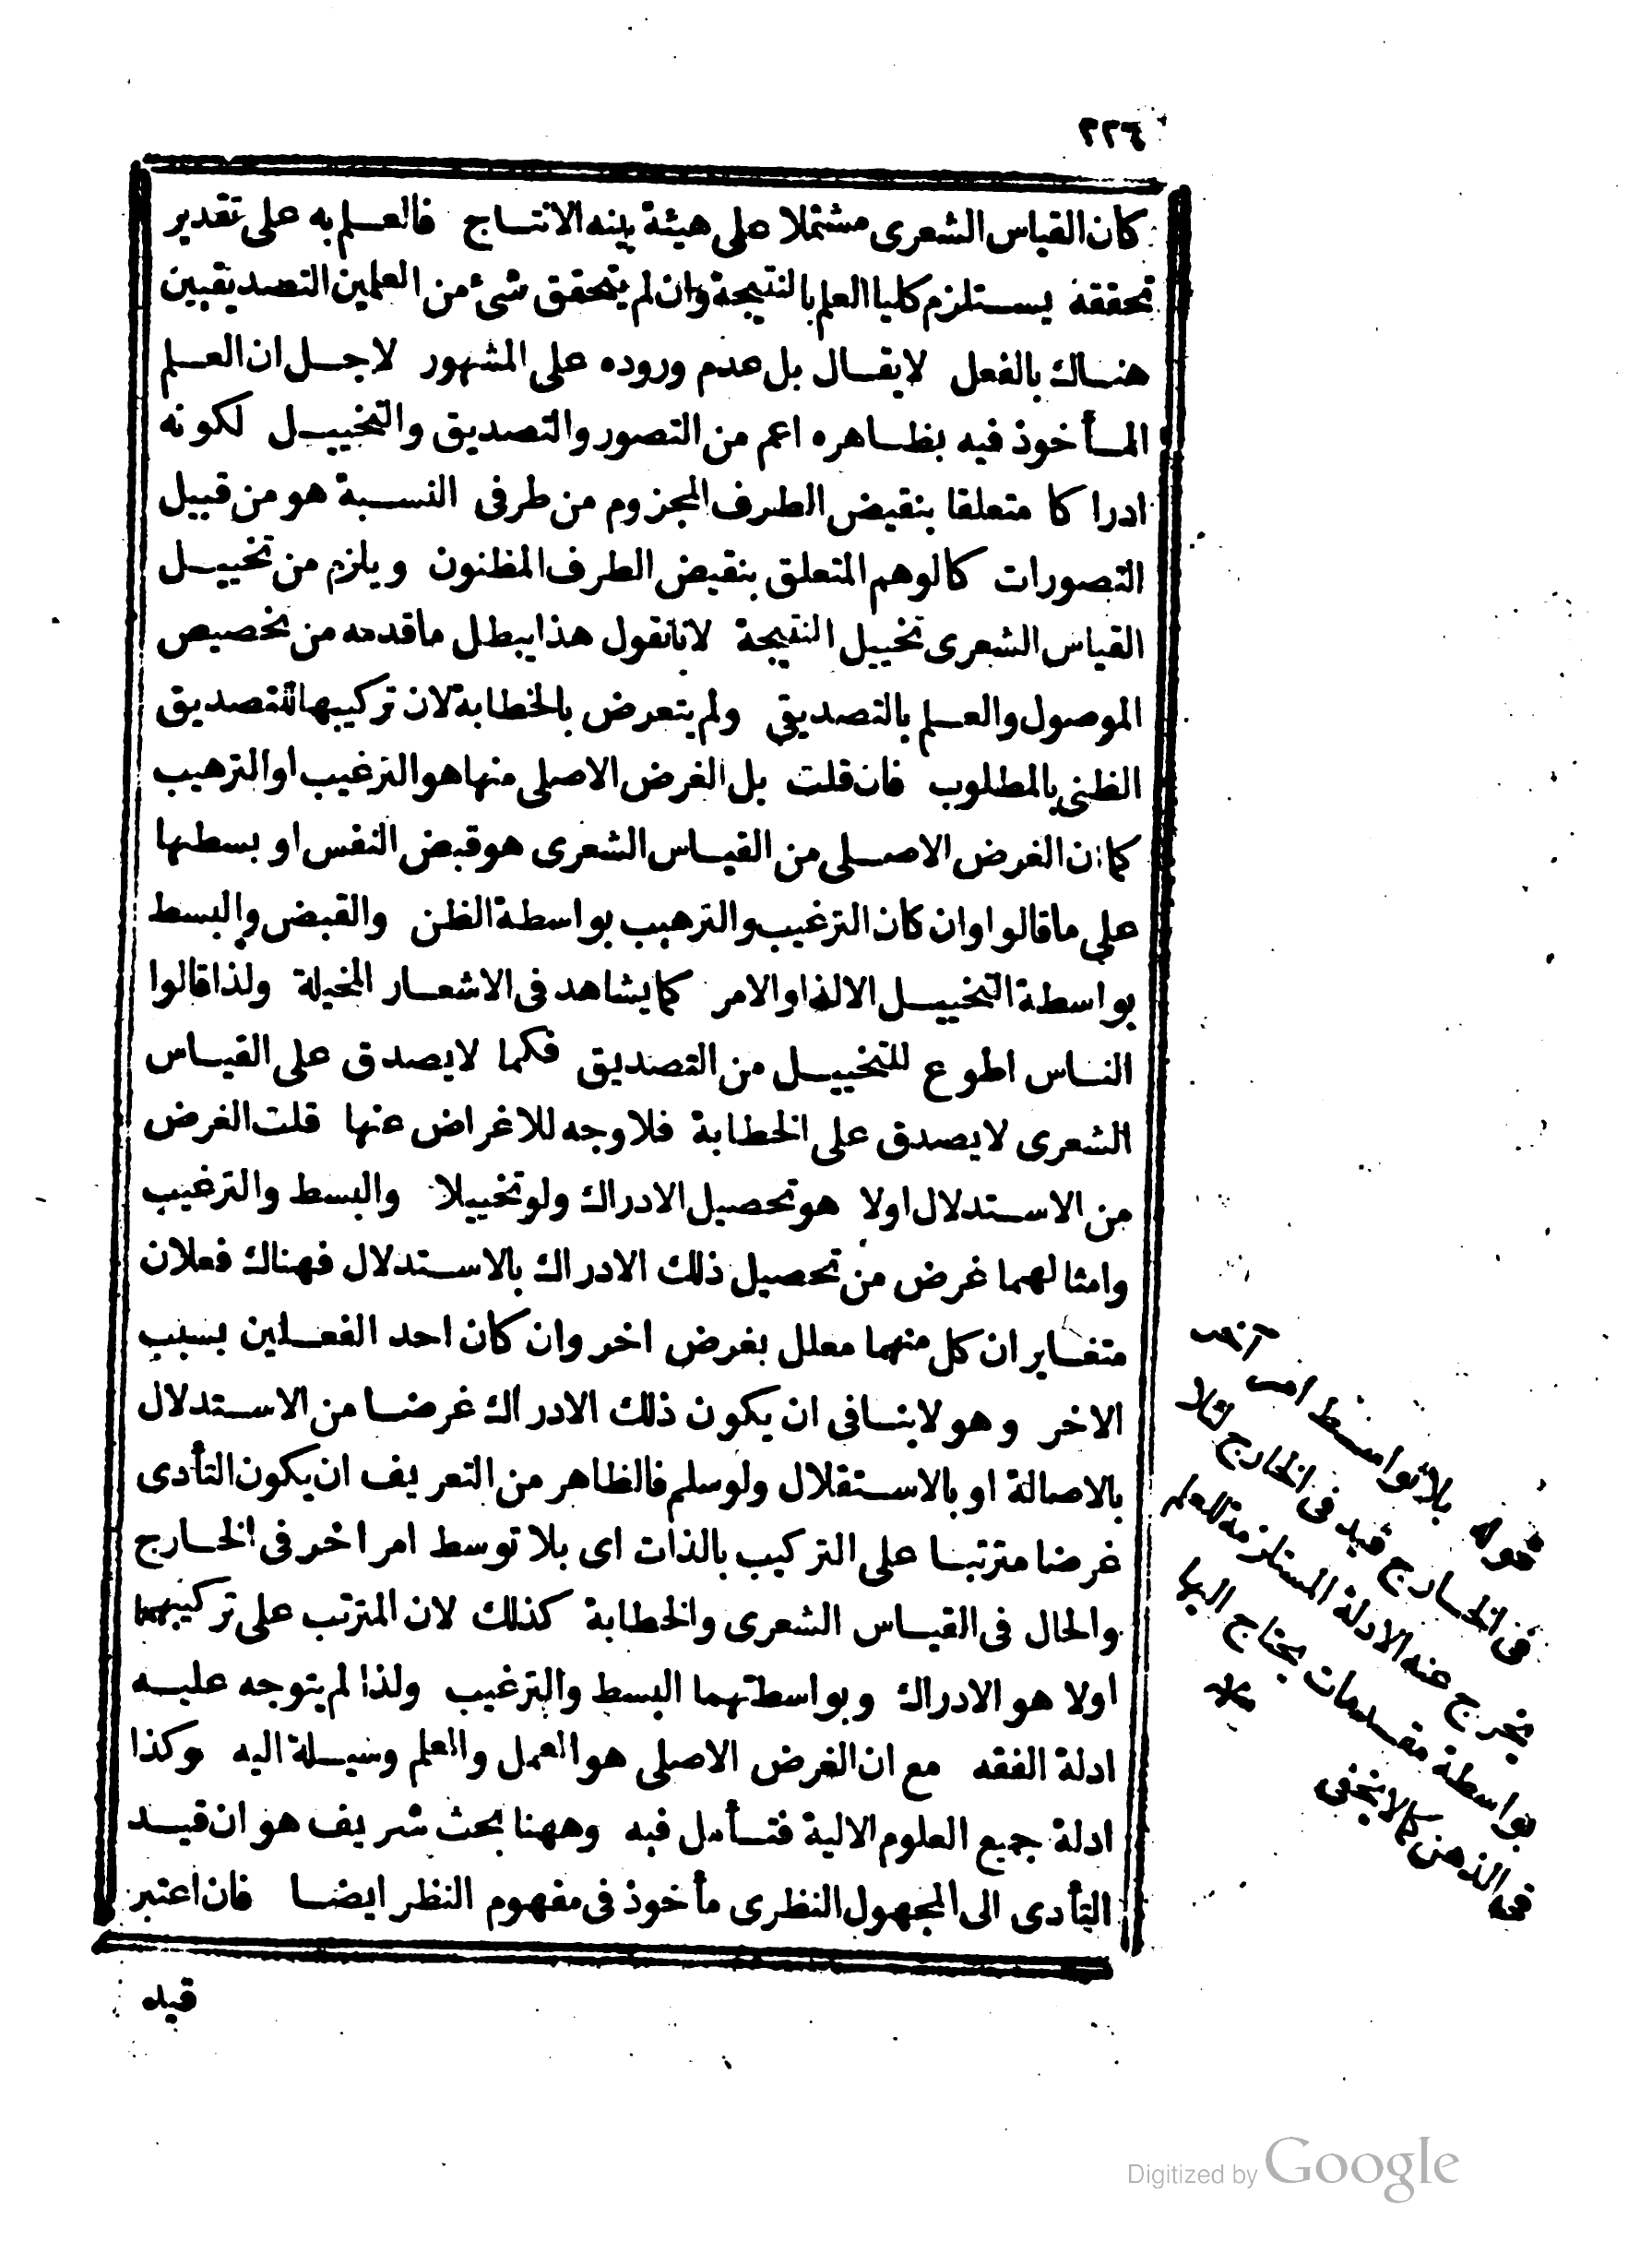 ٢٢٦
كان القياس الشعرى مشتملا على هيئة بينه الانتاج فالعلم به على تقدير
تحققه يستلزم كليا العلم بالنتيجة وان لم يتحقق شئ من العلمين التصديقيين
هناك بالفعل لا يقال بل عدم وروده على المشهور لاجل ان العلم
المأخوذ فيه بظاهره اعم من التصور والتصديق والتخييل لكونه
ادراكا متعلقا بنقيض الطرف المجزوم من طرفى النسبة هو من قبيل
التصورات كالوهم المتعلق بنقيض الطرف المظنون ويلزم من تخييل
القياس الشعرى تخييل النتيجة لانا نقول هذا يبطل ما قدمه من تخصيص
الموصول والعلم بالتصديقى ولم يتعرض بالخطابة لان تركيبها للتصديق
الظنى بالمطلوب فان قلت بل الغرض الاصلى منها هو الترغيب او الترهيب
كما ان الغرض الاصلى من القياس الشعرى هو قبض النفس او بسطها
على ما قالوا وان كان الترغيب والترهيب بواسطة الظن والقبض والبسط
بواسطة التخييل الالذ او الامر كما يشاهد فى الاشعار المخيلة ولذا قالوا
الناس اطوع للتخييل من التصديق فكما لا يصدق على القياس
الشعرى لا يصدق على الخطابة فلا وجه للاغراض عنها قلت الغرض
من الاستدلال اولا هو تحصيل الادراك ولو تخييلا والبسط والترغيب
وامثالهما غرض من تحصيل ذلك الادراك بالاستدلال فهناك فعلان
متغايران كل منهما معلل بغرض اخر وان كان احد الفعلين بسبب
الاخر وهو لا ينافى ان يكون ذلك الادراك غرضا من الاستدلال
بالاصالة او بالاستقلال ولو سلم فالظاهر من التعريف ان يكون التأدى
غرضا مترتبا على التركيب بالذات اى بلا توسط امر اخر فى الخارج
والحال فى القياس الشعرى والخطابة كذلك لان المترتب على تركيبهما
اولا هو الادراك وبواسطتهما البسط والترغيب ولذا لم يتوجه عليه
ادلة الفقه مع ان الغرض الاصلى هو العمل والعلم وسيلة اليه وكذا
ادلة جميع العلوم الالية فتأمل فيه وههنا بحث شريف هو ان قيد
التأدى الى المجهول النظرى مأخوذ فى مفهوم النظر ايضا فان اعتبر
قيد
قوله بلا توسط امر آخر
فى الخارج قيد فى الخارج لئلا
يخرج عنه الادلة المستلزمة للعلم
بواسطة مقدمات يحتاج اليها
فى الذهن كما لا يخفى
Digitized by Google